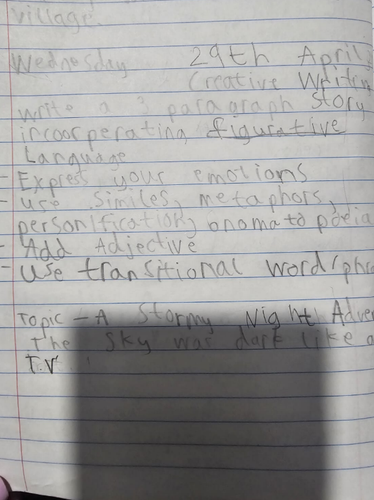 village.
Wednesday 29th April
Creative Writin
write a 3 paragraph story
incoorperating figurative
Language
- Express your emotions
- use similes, metaphors,
personification, onomatopoeia
- Add Adjective
- Use transitional word/phra
Topic - A Stormy Night Adven
The sky was dark like a
T.V